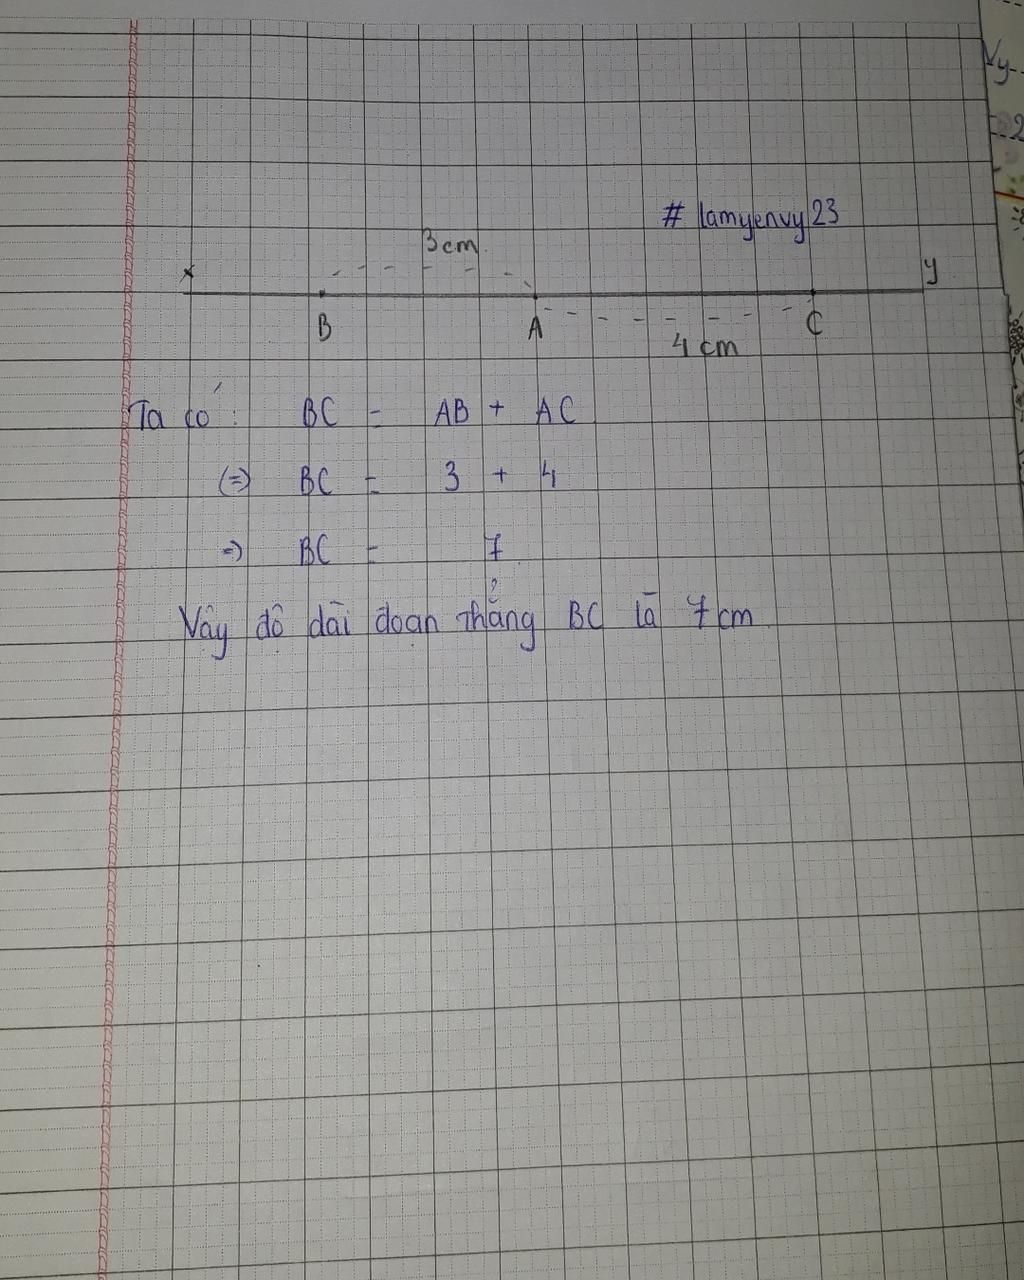 # lamyenvy23
3cm
x
y
B
A
C
4 cm
Ta có: BC = AB + AC
(=) BC = 3 + 4
=) BC = 7
Vậy độ dài đoạn thẳng BC là 7 cm
Vy